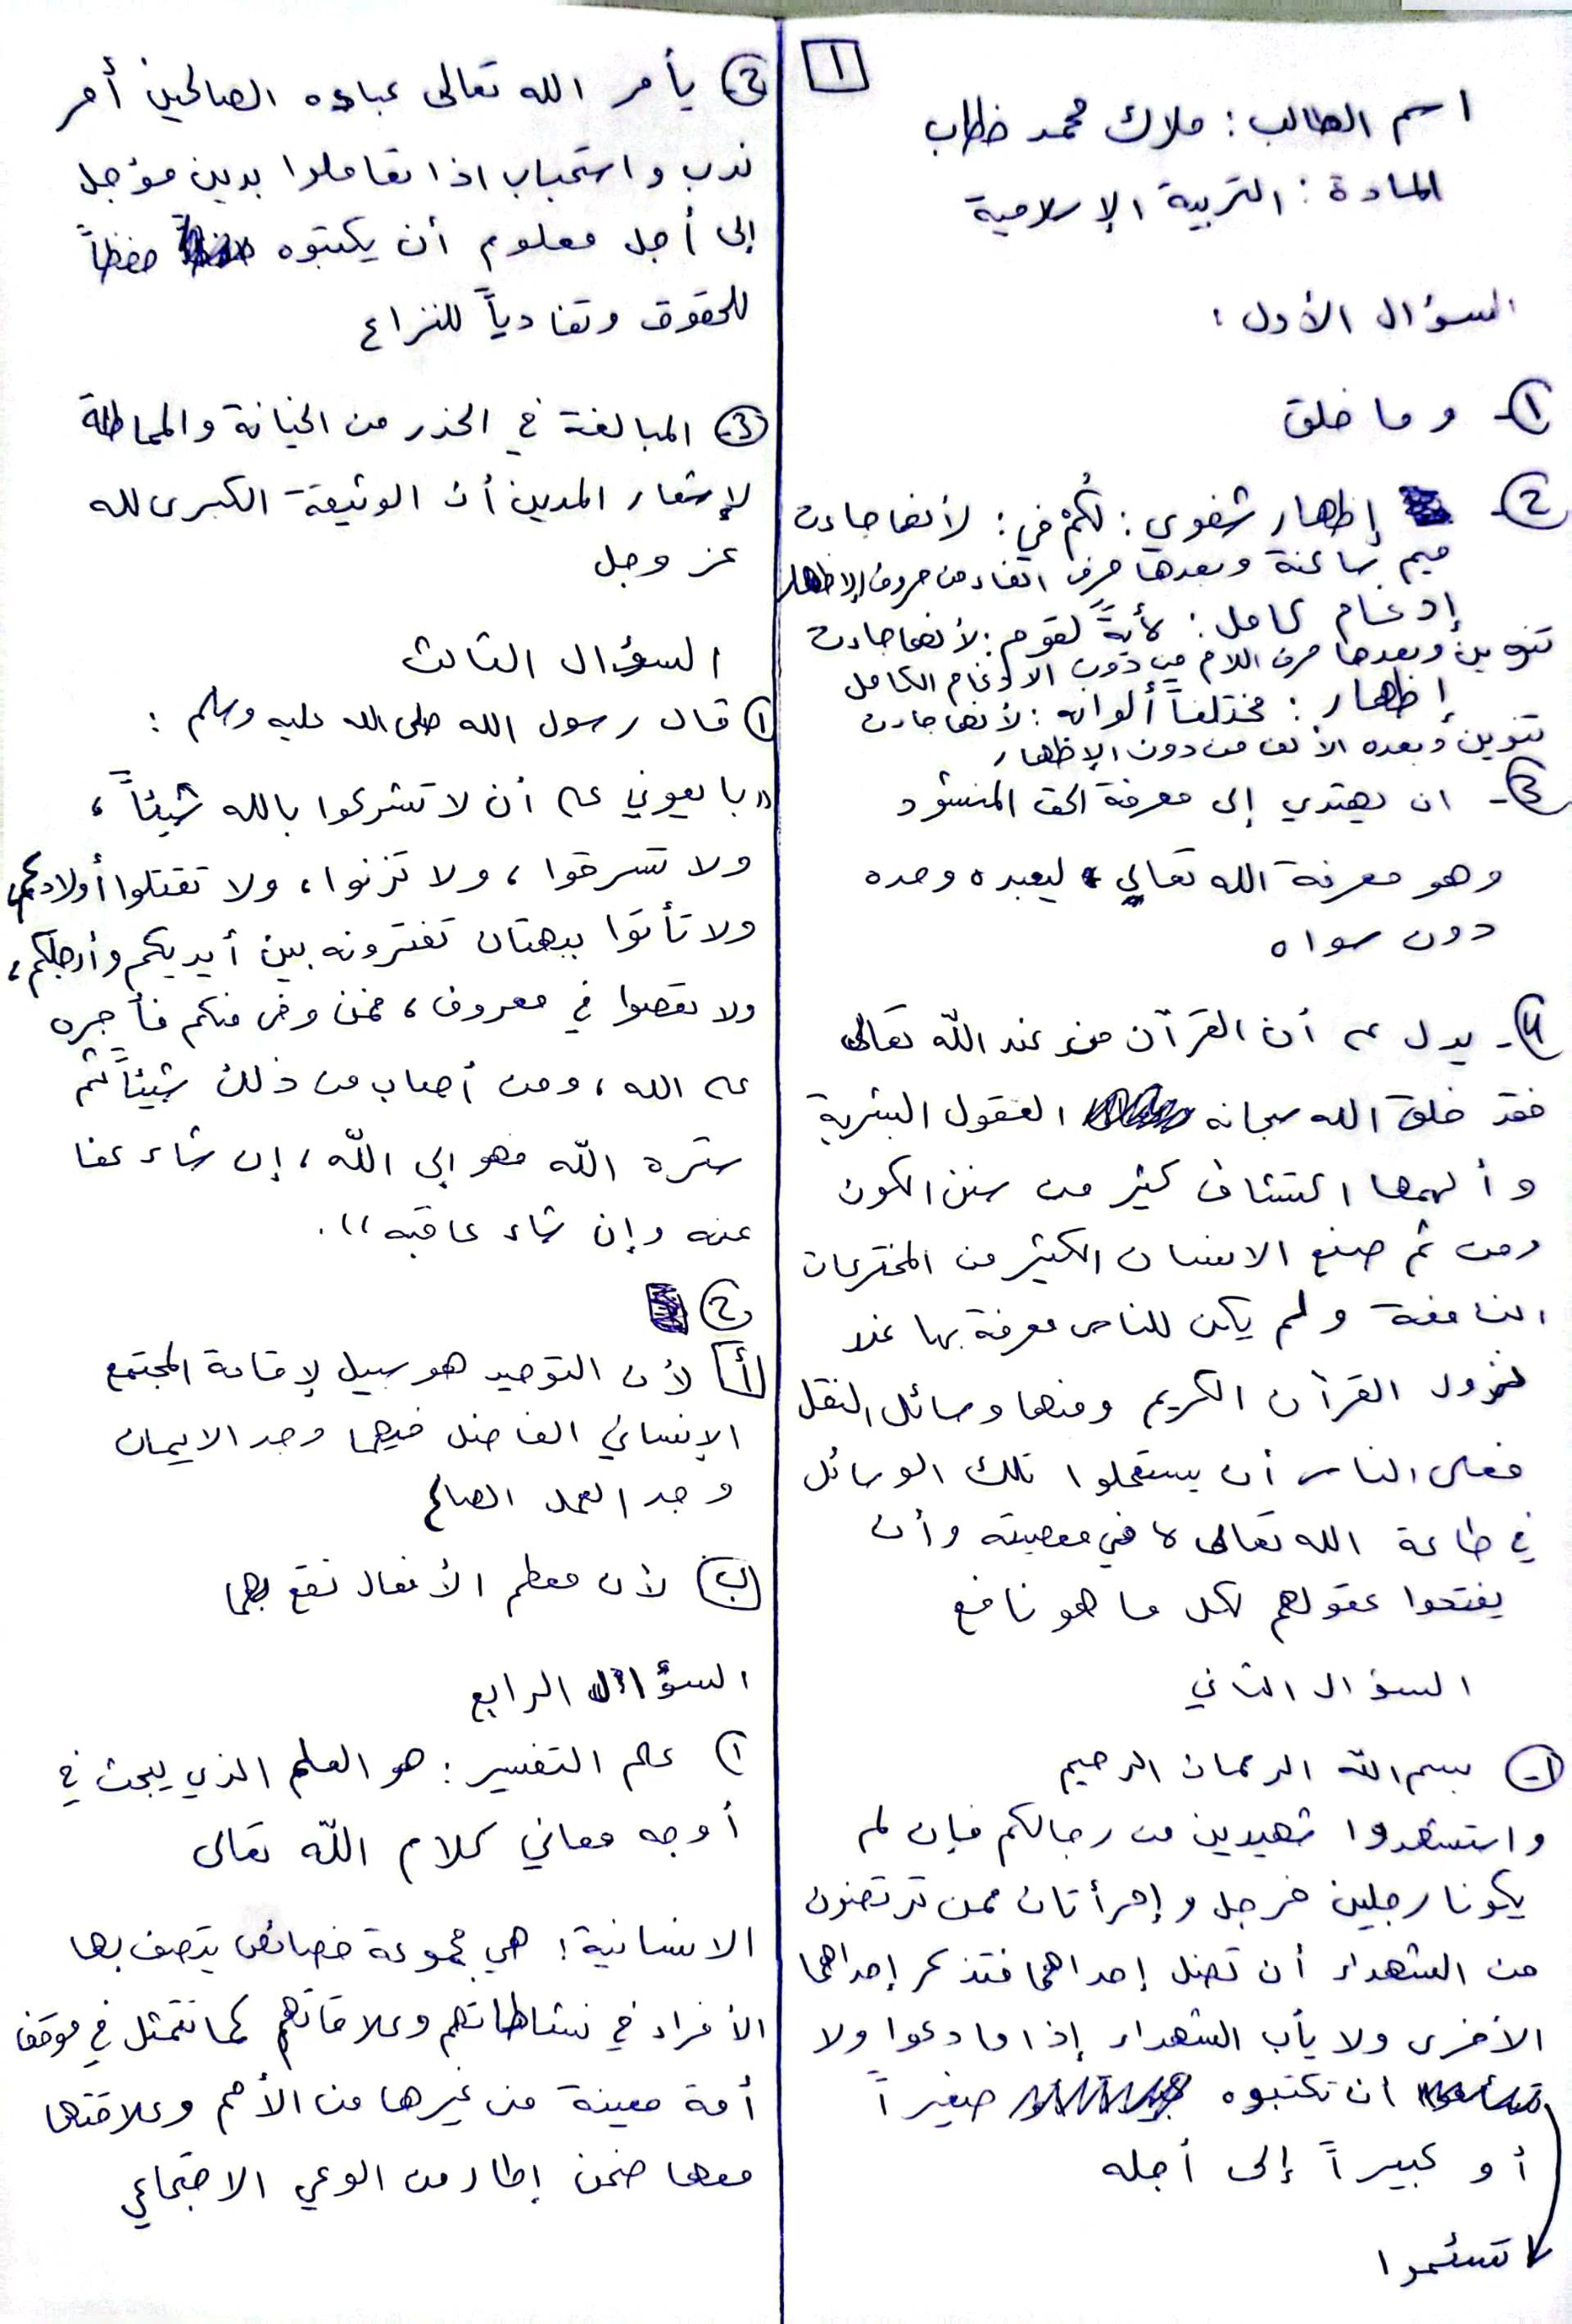 1
اسم الطالب: ملاك محمد خطاب
المادة: التربية الإسلامية
السؤال الأول:
1- وما خلق
2- إظهار شفوي: لكُمْ في: لأنها جاءت
ميم ساكنة وبعدها حرف الفاء من حروف الإظهار
إدغام كامل: لأيةً لقوم: لأنها جاءت
تنوين وبعدها حرف اللام من دون الادغام الكامل
إظهار: مختلفاً ألوانه: لأنها جاءت
تنوين وبعده الألف من دون الإظهار
3- ان يهتدي إلى معرفة الحق المنشود
وهو معرفة الله تعالى ليعبده وحده
دون سواه
4- يدل على أن القرآن من عند اللّه تعالى
فقد خلق الله سبحانه العقول البشرية
وألهمها اكتشاف كثير من سنن الكون
ومن ثم صنع الانسان الكثير من المخترعات
النافعة ولم يكن للناس معرفة بها عند
نزول القرآن الكريم ومنها وسائل النقل
فعلى الناس أن يستعملوا تلك الوسائل
في طاعة الله تعالى لا في معصيته وأن
يفتحوا عقولهم لكل ما هو نافع
السؤال الثاني
1- بسم اللّه الرحمان الرحيم
واستشهدوا شهيدين من رجالكم فإن لم
يكونا رجلين فرجل وإمرأتان ممن ترتضون
من الشهداء أن تضل إحداهما فتذكر إحداهما
الأخرى ولا يأب الشهداء إذا ما دعوا ولا
ان تكتبوه صغيراً
أو كبيراً إلى أجله
تسئموا
2- يأمر الله تعالى عباده الصالحين أمر
ندب واستحباب اذا تعاملوا بدين مؤجل
إلى أجل معلوم أن يكتبوه حفظاً
للحقوق وتفادياً للنزاع
3- المبالغة في الحذر من الخيانة والمماطلة
لإشعار المدين أن الوثيقة الكبرى لله
عز وجل
السؤال الثالث
1 قال رسول الله صلى الله عليه وسلم:
"بايعوني على أن لا تشركوا بالله شيئاً،
ولا تسرقوا، ولا تزنوا، ولا تقتلوا أولادكم،
ولا تأتوا ببهتان تفترونه بين أيديكم وأرجلكم،
ولا تعصوا في معروف، فمن وفى منكم فأجره
على الله، ومن أصاب من ذلك شيئاً ثم
ستره اللّه فهو إلى اللّه، إن شاء عفا
عنه وإن شاء عاقبه".
2
أ لأن التوحيد هو سبيل لإقامة المجتمع
الإنساني الفاضل فيهما وجد الايمان
وجد العمل الصالح
ب لأن معظم الأفعال تقع بهما
السؤال الرابع
1 علم التفسير: هو العلم الذي يبحث في
أوجه معاني كلام اللّه تعالى
الانسانية: هي مجموعة خصائص يتصف بها
الأفراد في نشاطاتهم وعلاقاتهم كما تتمثل في موقف
أمة معينة من غيرها من الأمم وعلاقتها
معها ضمن إطار من الوعي الاجتماعي